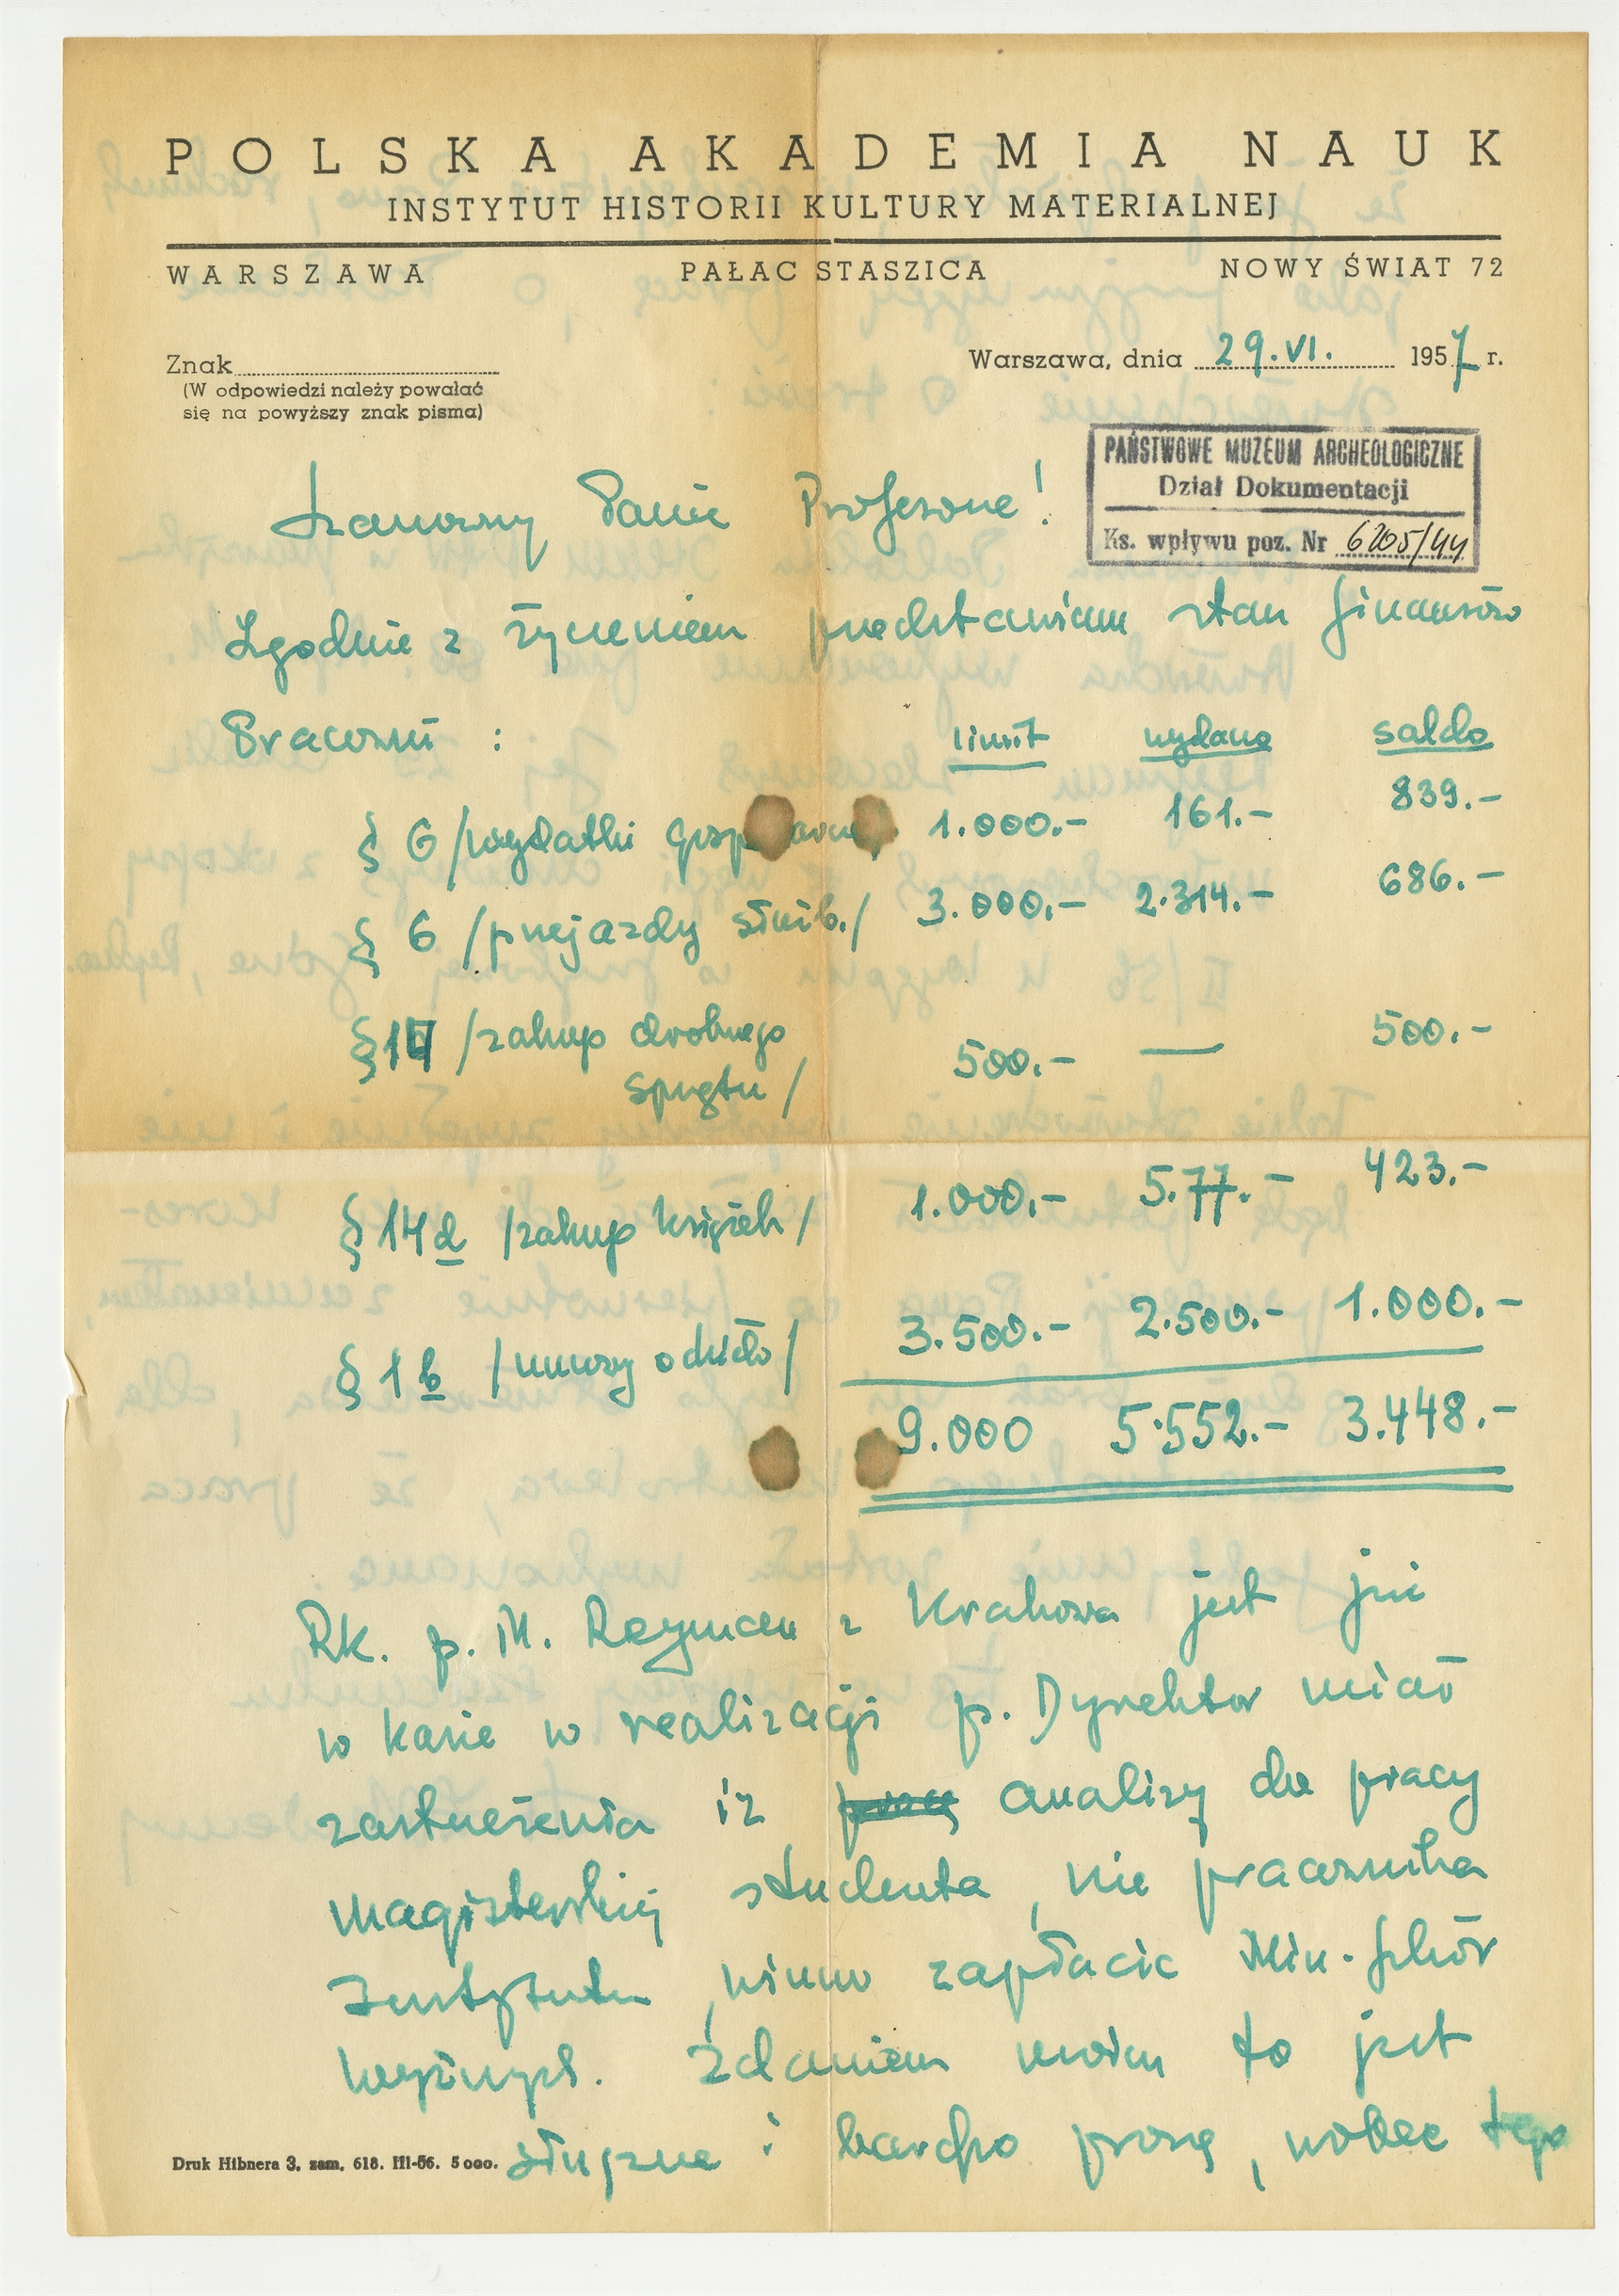 POLSKA AKADEMIA NAUK
INSTYTUT HISTORII KULTURY MATERIALNEJ
WARSZAWA PAŁAC STASZICA NOWY ŚWIAT 72
Znak
Warszawa, dnia 29.VI. 1957 r.
(W odpowiedzi należy powałać
się na powyższy znak pisma)
PAŃSTWOWE MUZEUM ARCHEOLOGICZNE
Dział Dokumentacji
Ks. wpływu poz. Nr 6205/44
Szanowny Panie Profesorze!
Zgodnie z życzeniem przedstawiam stan finansów
Pracowni : limit wydano saldo
§ 6 /wydatki 1.000.- 161.- 839.-
§ 6 /przejazdy służb./ 3.000.- 2.314.- 686.-
§ /zakup drobnego
sprzętu/ 500.- — 500.-
§ 14d /zakup książek/ 1.000.- 5.77.- 423.-
§ 1b /umowy o dzieło/ 3.500.- 2.500.- 1.000.-
9.000 5.552.- 3.448.-
Rk. p. M. Reyman z Krakowa jest już
w kasie w realizacji p. Dyrektor miał
zastrzeżenia iż pracę analizy do pracy
magisterskiej studenta, nie pracownika
Instytutu, winno zapłacić Min. Szkół
Wyższych. Zdaniem moim to jest
słuszne i bardzo proszę, wobec tego
Druk Hibnera 3. zam. 618. III-56. 5000.